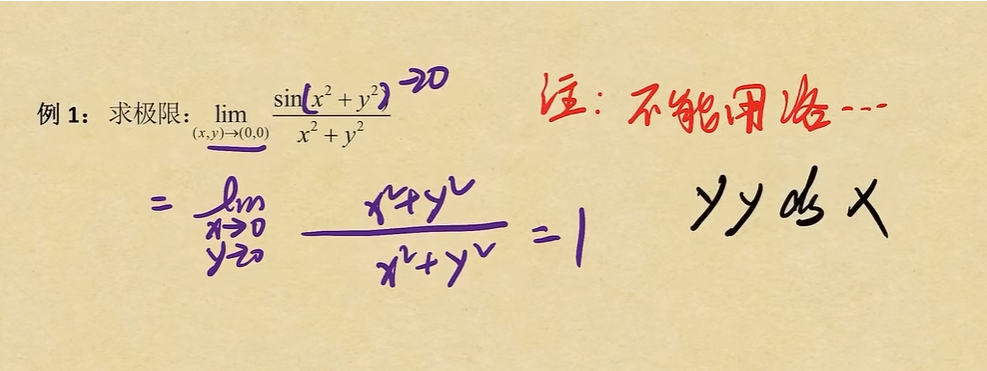 例 1： 求极限： lim (x,y)→(0,0) sin(x²+y²)/(x²+y²) →0
= lim x→0 y→0 (x²+y²)/(x²+y²) = 1
注：不能用洛…
yyds x